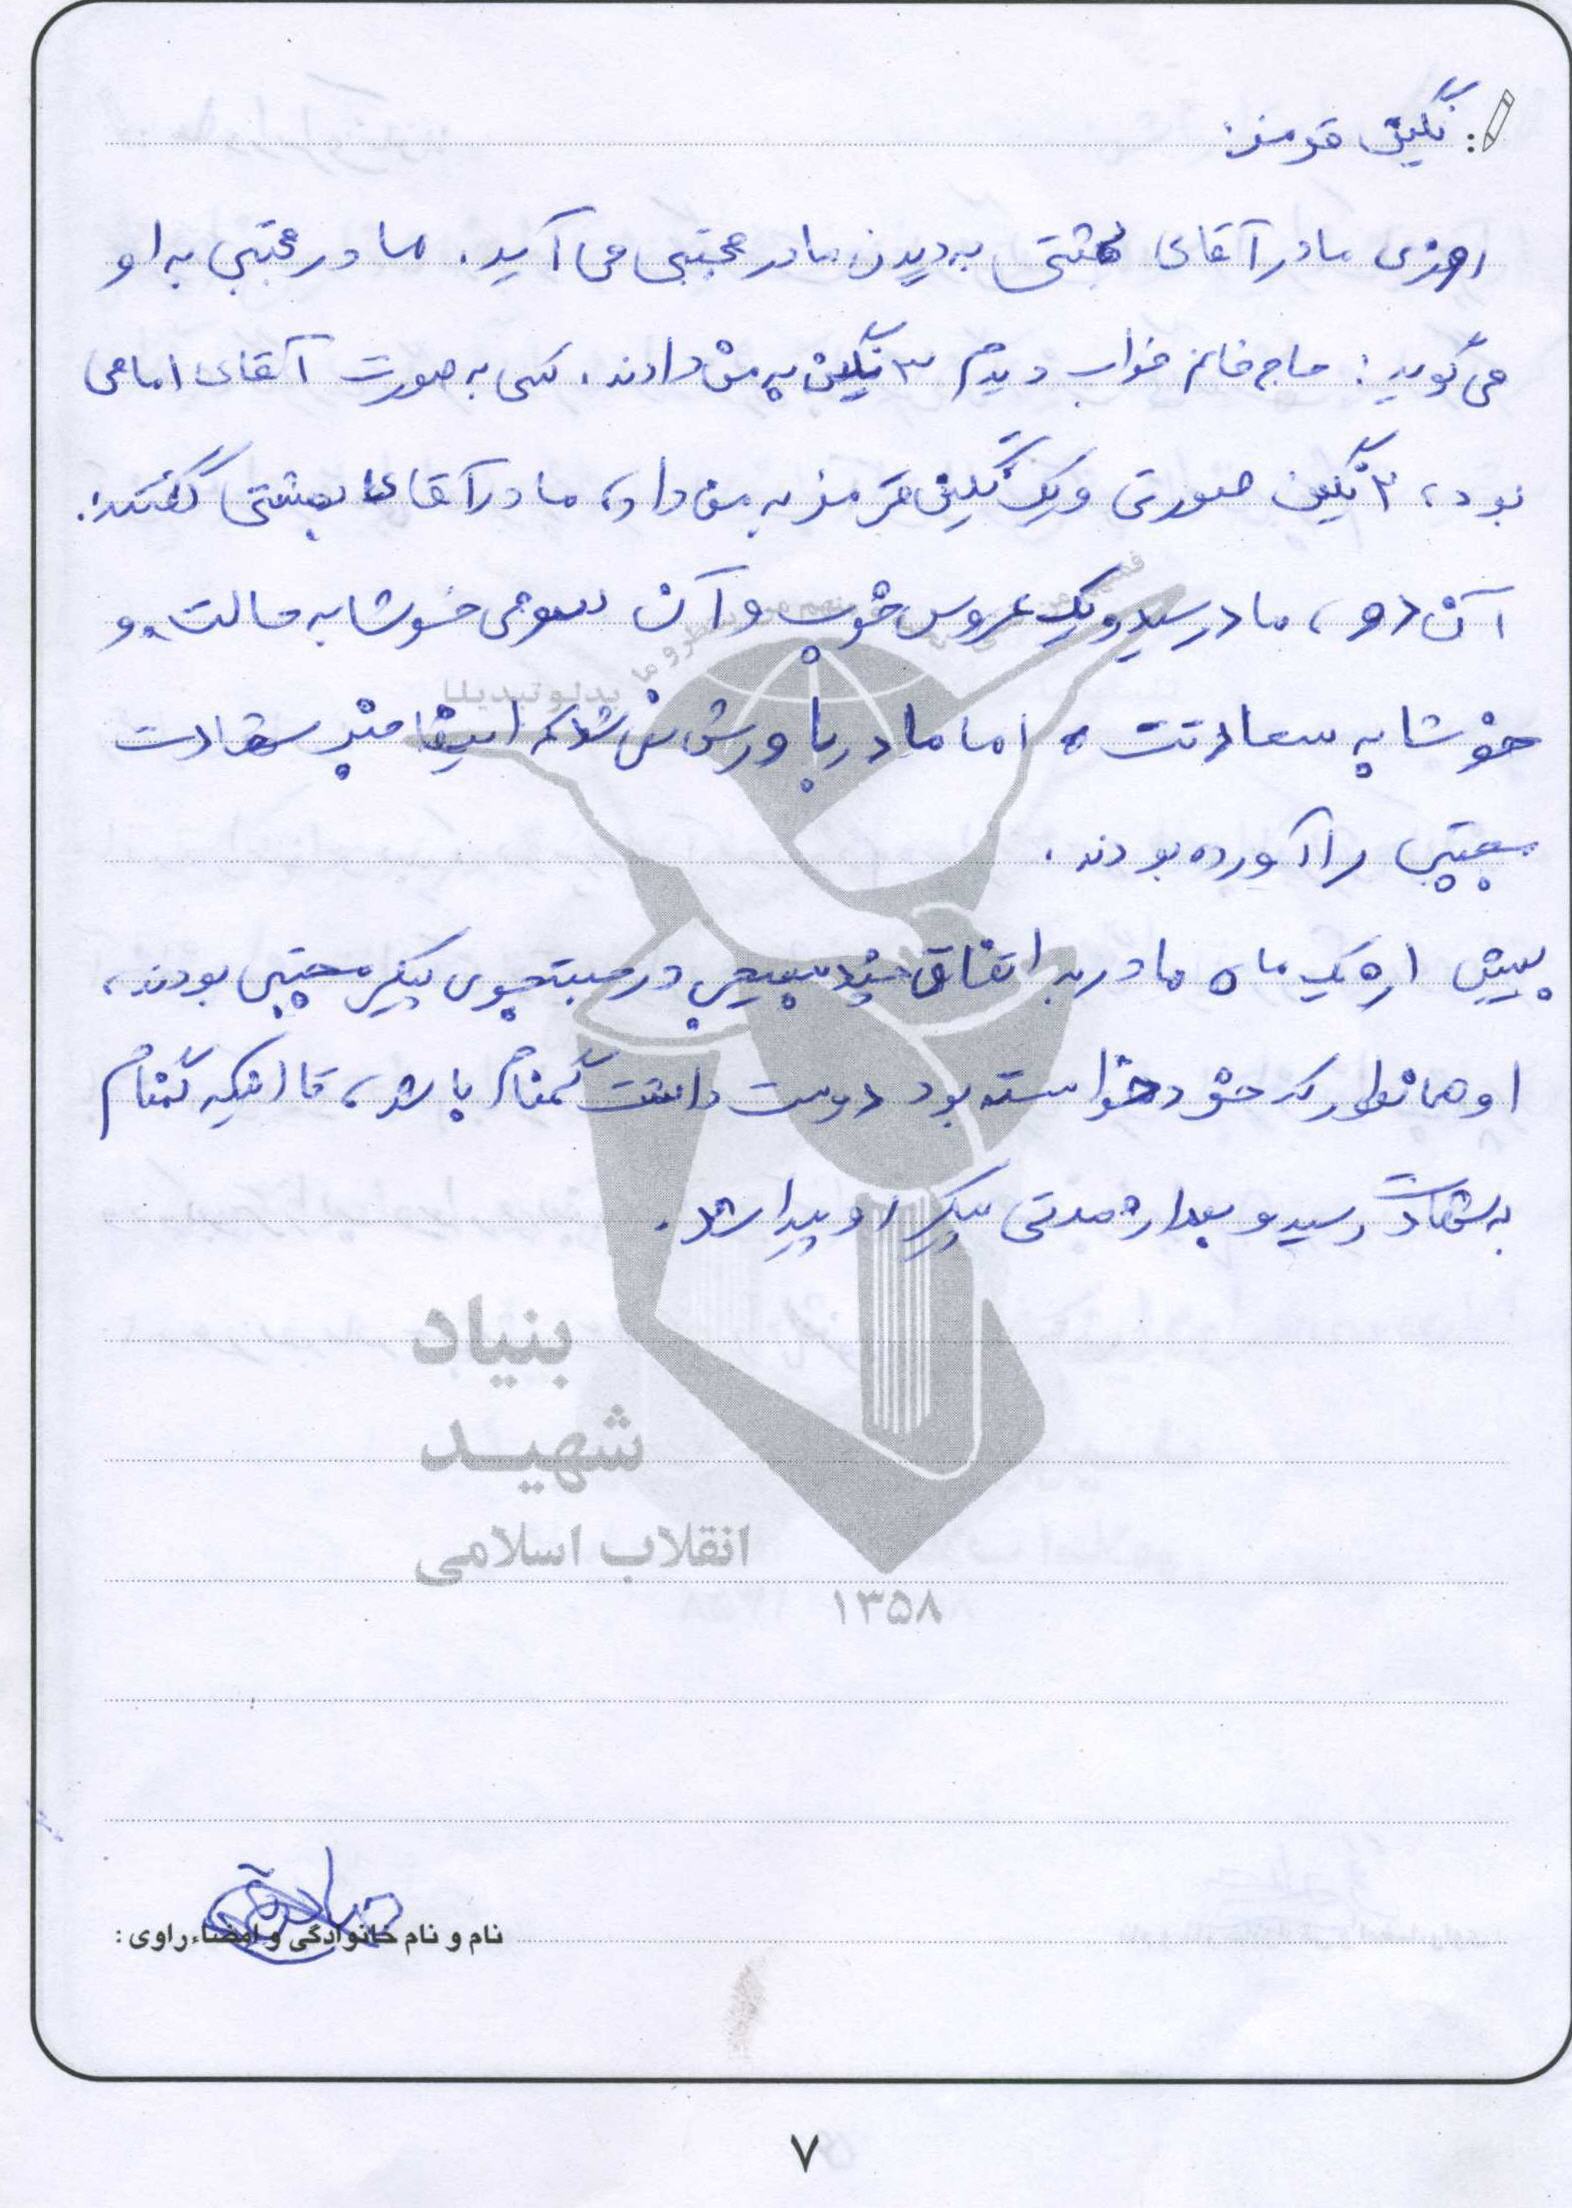 نگین قرمز:
روزی مادر آقای بهشتی به دیدن مادر مجتبی می آید. مادر مجتبی به او
می گوید: حاج خانم خواب دیدم ۳ نگین به من دادند. کسی به صورت آقای امامی
بود، ۲ نگین صورتی و یک نگین قرمز به من داد، مادر آقای بهشتی گفتند:
آن دو، مادر سید و یک عروس خوب و آن سومی خوشا به حالت و
خوشا به سعادتت. اما مادر باورش نمی شد که اینها خبر شهادت
مجتبی را آورده بودند.
بیش از یک ماه مادر به اتفاق چند بسیجی در جستجوی پیکر مجتبی بودند،
او همانطور که خود خواسته بود دوست داشت گمنام باشد، تا اینکه گمنام
به شهادت رسید و بعد از مدتی پیکر او پیدا شد.
بدلو تبدیلا
بنیاد
شهید
انقلاب اسلامی
۱۳۵۸
نام و نام خانوادگی و امضاء راوی:
۷